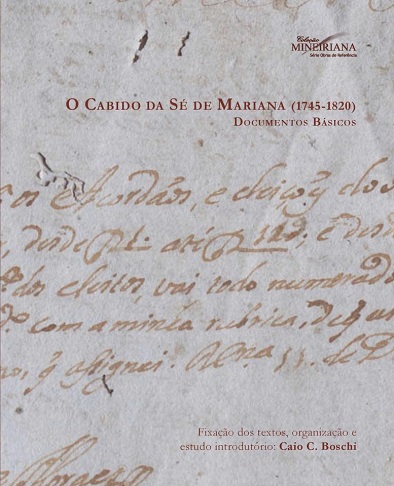 Coleção
MINEIRIANA
Série Obras de Referência
O CABIDO DA SÉ DE MARIANA (1745-1820)
DOCUMENTOS BÁSICOS
os Acordãos, e eleiçoẽs dos
, desde f. 1. até f. 120, e desde
dos eleitos, vai todo numerado
com a minha rubrica, de q uso
, q asignei. Mna 11 de
Fixação dos textos, organização e
estudo introdutório: Caio C. Boschi